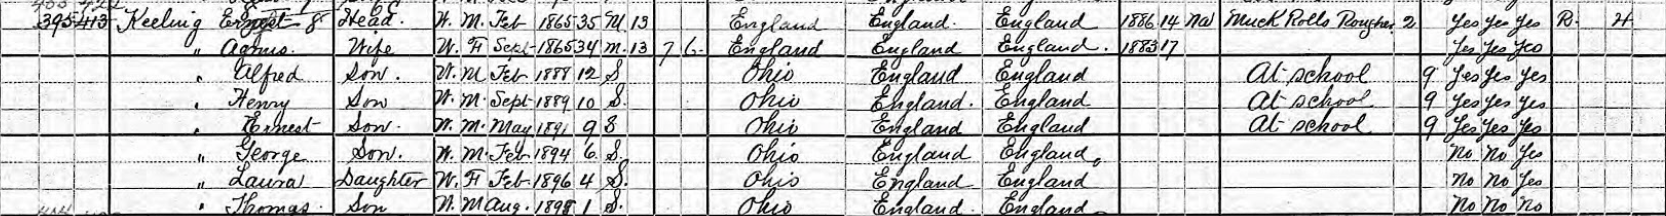 395 413 Keeling Ernest 8 Head. W. M. Feb 1865 35 M. 13 England England. England 1886 14 Na Muck Rolls Rougher 2 Yes Yes Yes R. H
" Agnes. Wife W. F Sept 1865 34 M. 13 7 6 England England England. 1883 17 Yes Yes Yes
" Alfred Son. W. M Feb 1888 12 S. Ohio England England At school 9 Yes Yes Yes
" Henry Son W. M. Sept 1889 10 S. Ohio England. England At school 9 Yes Yes Yes
" Ernest Son. W. M. May 1891 9 S Ohio England England At school 9 Yes Yes Yes
" George Son. W. M. Feb 1894 6 S. Ohio England England No No Yes
" Laura Daughter W. F Feb 1896 4 S. Ohio England England No No Yes
" Thomas. Son W. M Aug. 1898 1 S. Ohio England. England No No No